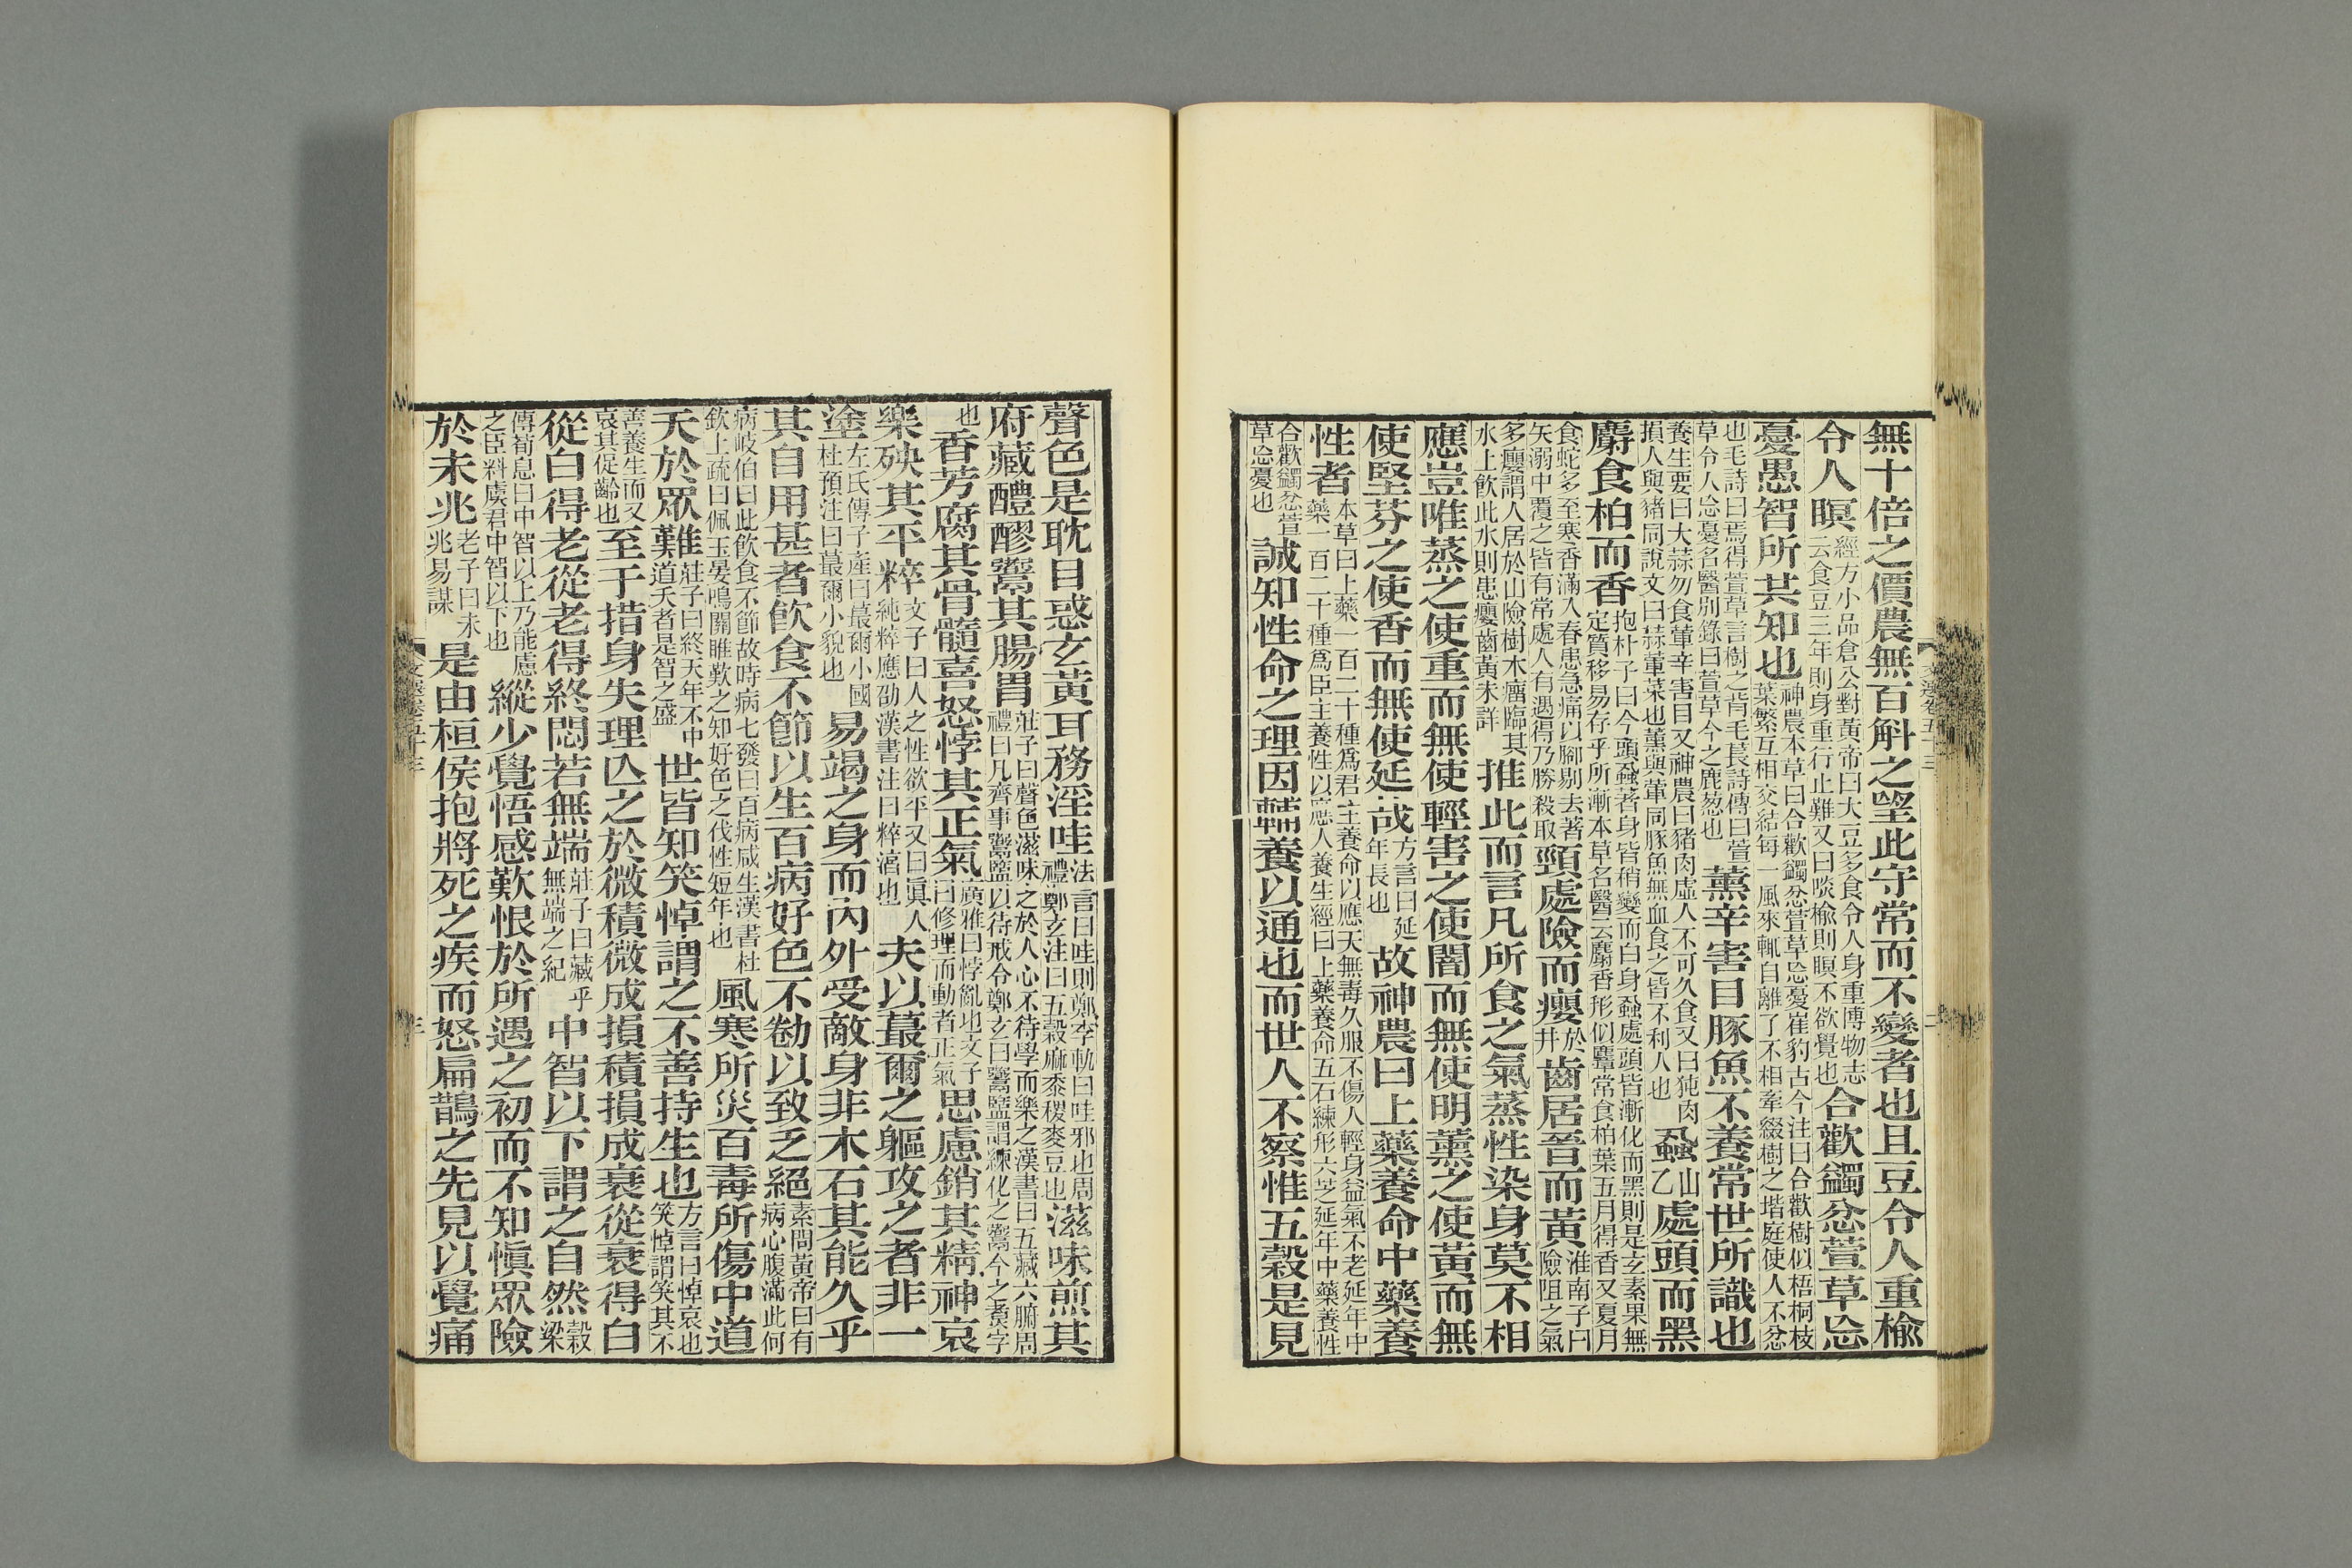 無十倍之價農無百斛之望此守常而不變者也且豆令人重榆
令人瞑經方小品倉公對黃帝曰大豆多食令人身重博物志云食豆三年則身重行止難又曰啖榆則瞑不欲覺也合歡蠲忿萱草忘
憂愚智所共知也神農本草曰合歡蠲忿萱草忘憂崔豹古今注曰合歡樹似梧桐枝葉繁互相交結每一風來輒自離了不相牽綴樹之堦庭使人不忿
也毛詩曰焉得萱草言樹之背毛萇詩傳曰萱草令人忘憂名醫別錄曰萱草今之鹿葱也薰辛害目豚魚不養常世所識也
養生要曰大蒜勿食葷辛害目又神農曰猪肉虛人不可久食又曰㹠肉損人與猪同說文曰蒜葷菜也薰與葷同豚魚無血食之皆不利人也蝨山乙處頭而黑
麝食柏而香抱朴子曰今頭蝨著身皆稍變而白身蝨處頭皆漸化而黑則是玄素果無定質移易存乎所漸本草名醫云麝香形似麞常食柏葉五月得香又夏月
食蛇多至寒香滿入春患急痛以脚剔去著矢溺中覆之皆有常處人有遇得乃勝殺取頸處險而癭於井齒居晉而黃淮南子曰險阻之氣
多癭謂人居於山險樹木瘤臨其水上飲此水則患癭齒黃未詳推此而言凡所食之氣蒸性染身莫不相
應豈唯蒸之使重而無使輕害之使闇而無使明薰之使黃而無
使堅芬之使香而無使延哉方言曰延年長也故神農曰上藥養命中藥養
性者本草曰上藥一百二十種爲君主養命以應天無毒久服不傷人輕身益氣不老延年中藥一百二十種爲臣主養性以應人養生經曰上藥養命五石練形六芝延年中藥養性
合歡蠲忿萱草忘憂也誠知性命之理因輔養以通也而世人不察惟五穀是見
聲色是耽目惑玄黃耳務淫哇法言曰哇則鄭李軌曰哇邪也周禮鄭玄注曰五穀麻黍稷麥豆也滋味煎其
府藏醴醪鬻其腸胃莊子曰聲色滋味之於人心不待學而樂之漢書曰五藏六腑周禮曰凡齊事鬻盬以待戒令鄭玄曰鬻盬謂練化之鬻今之煑字
也香芳腐其骨髓喜怒悖其正氣廣雅曰悖亂也文子曰修理而動者正氣思慮銷其精神哀
樂殃其平粹文子曰人之性欲平又曰眞人純粹應劭漢書注曰粹湻也夫以蕞爾之軀攻之者非一
塗左氏傳子產曰蕞爾小國杜預注曰蕞爾小貌也易竭之身而內外受敵身非木石其能久乎
其自用甚者飲食不節以生百病好色不勌以致乏絕素問黃帝曰有病心腹滿此何
病岐伯曰此飲食不節故時病七發曰百病咸生漢書杜欽上疏曰佩玉晏鳴關雎歎之知好色之伐性短年也風寒所災百毒所傷中道
夭於眾難莊子曰終天年不中道夭者是智之盛世皆知笑悼謂之不善持生也方言曰悼哀也笑悼謂笑其不
善養生而又哀其促齡也至于措身失理亾之於微積微成損積損成衰從衰得白
從白得老從老得終悶若無端莊子曰藏乎無端之紀中智以下謂之自然穀梁
傳荀息曰中智以上乃能慮之臣料虞君中智以下也縱少覺悟感歎恨於所遇之初而不知愼眾險
於未兆老子曰未兆易謀是由桓侯抱將死之疾而怒扁鵲之先見以覺痛